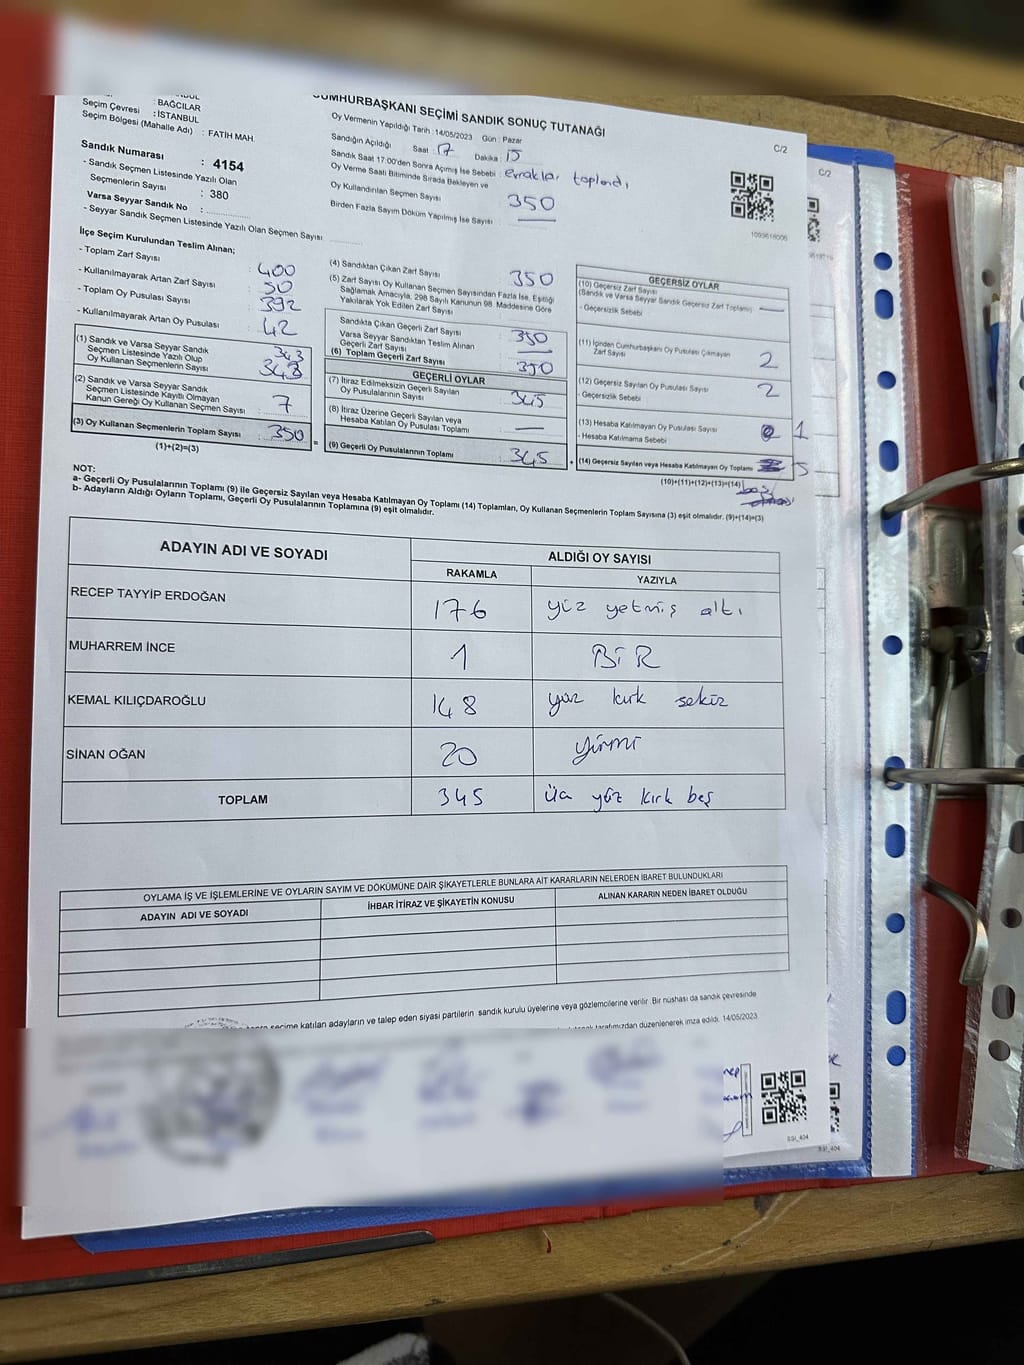 : BAĞCILAR
Seçim Çevresi : İSTANBUL
Seçim Bölgesi (Mahalle Adı) : FATİH MAH.
Sandık Numarası : 4154
- Sandık Seçmen Listesinde Yazılı Olan
Seçmenlerin Sayısı : 380
Varsa Seyyar Sandık No :
- Seyyar Sandık Seçmen Listesinde Yazılı Olan Seçmen Sayısı
CUMHURBAŞKANI SEÇİMİ SANDIK SONUÇ TUTANAĞI
C/2
Oy Vermenin Yapıldığı Tarih : 14/05/2023 Gün : Pazar
Sandığın Açıldığı Saat : 17 Dakika : 15
Sandık Saat 17:00'den Sonra Açımış İse Sebebi : evraklar toplandı
Oy Verme Saati Bitiminde Sırada Bekleyen ve
Oy Kullandırılan Seçmen Sayısı 350
Birden Fazla Sayım Döküm Yapılmış İse Sayısı : —
İlçe Seçim Kurulundan Teslim Alınan;
- Toplam Zarf Sayısı : 400
- Kullanılmayarak Artan Zarf Sayısı : 50
- Toplam Oy Pusulası Sayısı : 392
- Kullanılmayarak Artan Oy Pusulası : 42
(1) Sandık ve Varsa Seyyar Sandık
Seçmen Listesinde Yazılı Olup
Oy Kullanan Seçmenlerin Sayısı : 343
343
(2) Sandık ve Varsa Seyyar Sandık
Seçmen Listesinde Kayıtlı Olmayan
Kanun Gereği Oy Kullanan Seçmen Sayısı : 7
(3) Oy Kullanan Seçmenlerin Toplam Sayısı : 350
(1)+(2)=(3)
=
(4) Sandıktan Çıkan Zarf Sayısı 350
(5) Zarf Sayısı Oy Kullanan Seçmen Sayısından Fazla İse, Eşitliği
Sağlamak Amacıyla, 298 Sayılı Kanunun 98. Maddesine Göre
Yakılarak Yok Edilen Zarf Sayısı
Sandıkta Çıkan Geçerli Zarf Sayısı 350
Varsa Seyyar Sandıktan Teslim Alınan
Geçerli Zarf Sayısı —
(6) Toplam Geçerli Zarf Sayısı 350
GEÇERLİ OYLAR
(7) İtiraz Edilmeksizin Geçerli Sayılan
Oy Pusulalarının Sayısı 345
(8) İtiraz Üzerine Geçerli Sayılan veya
Hesaba Katılan Oy Pusulası Toplamı —
(9) Geçerli Oy Pusulalarının Toplamı 345
+
GEÇERSİZ OYLAR
(10) Geçersiz Zarf Sayısı
(Sandık ve Varsa Seyyar Sandık Geçersiz Zarf Toplamı) —
- Geçersizlik Sebebi
(11) İçinden Cumhurbaşkanı Oy Pusulası Çıkmayan
Zarf Sayısı 2
(12) Geçersiz Sayılan Oy Pusulası Sayısı 2
- Geçersizlik Sebebi
(13) Hesaba Katılmayan Oy Pusulası Sayısı 1
- Hesaba Katılmama Sebebi
(14) Geçersiz Sayılan veya Hesaba Katılmayan Oy Toplamı 5
(10)+(11)+(12)+(13)=(14) beş
NOT:
a- Geçerli Oy Pusulalarının Toplamı (9) ile Geçersiz Sayılan veya Hesaba Katılmayan Oy Toplamı (14) Toplamları, Oy Kullanan Seçmenlerin Toplam Sayısına (3) eşit olmalıdır. (9)+(14)=(3)
b- Adayların Aldığı Oyların Toplamı, Geçerli Oy Pusulalarının Toplamına (9) eşit olmalıdır.
ADAYIN ADI VE SOYADI ALDIĞI OY SAYISI
RAKAMLA YAZIYLA
RECEP TAYYİP ERDOĞAN 176 yüz yetmiş altı
MUHARREM İNCE 1 BİR
KEMAL KILIÇDAROĞLU 148 yüz kırk sekiz
SİNAN OĞAN 20 yirmi
TOPLAM 345 üç yüz kırk beş
OYLAMA İŞ VE İŞLEMLERİNE VE OYLARIN SAYIM VE DÖKÜMÜNE DAİR ŞİKAYETLERLE BUNLARA AİT KARARLARIN NELERDEN İBARET BULUNDUKLARI
ADAYIN ADI VE SOYADI İHBAR İTİRAZ VE ŞİKAYETİN KONUSU ALINAN KARARIN NEDEN İBARET OLDUĞU
seçime katılan adayların ve talep eden siyasi partilerin sandık kurulu üyelerine veya gözlemcilerine verilir. Bir nüshası da sandık çevresinde
tarafımızdan düzenlenerek imza edildi. 14/05/2023
SSİ_404
C/2
SSİ_404